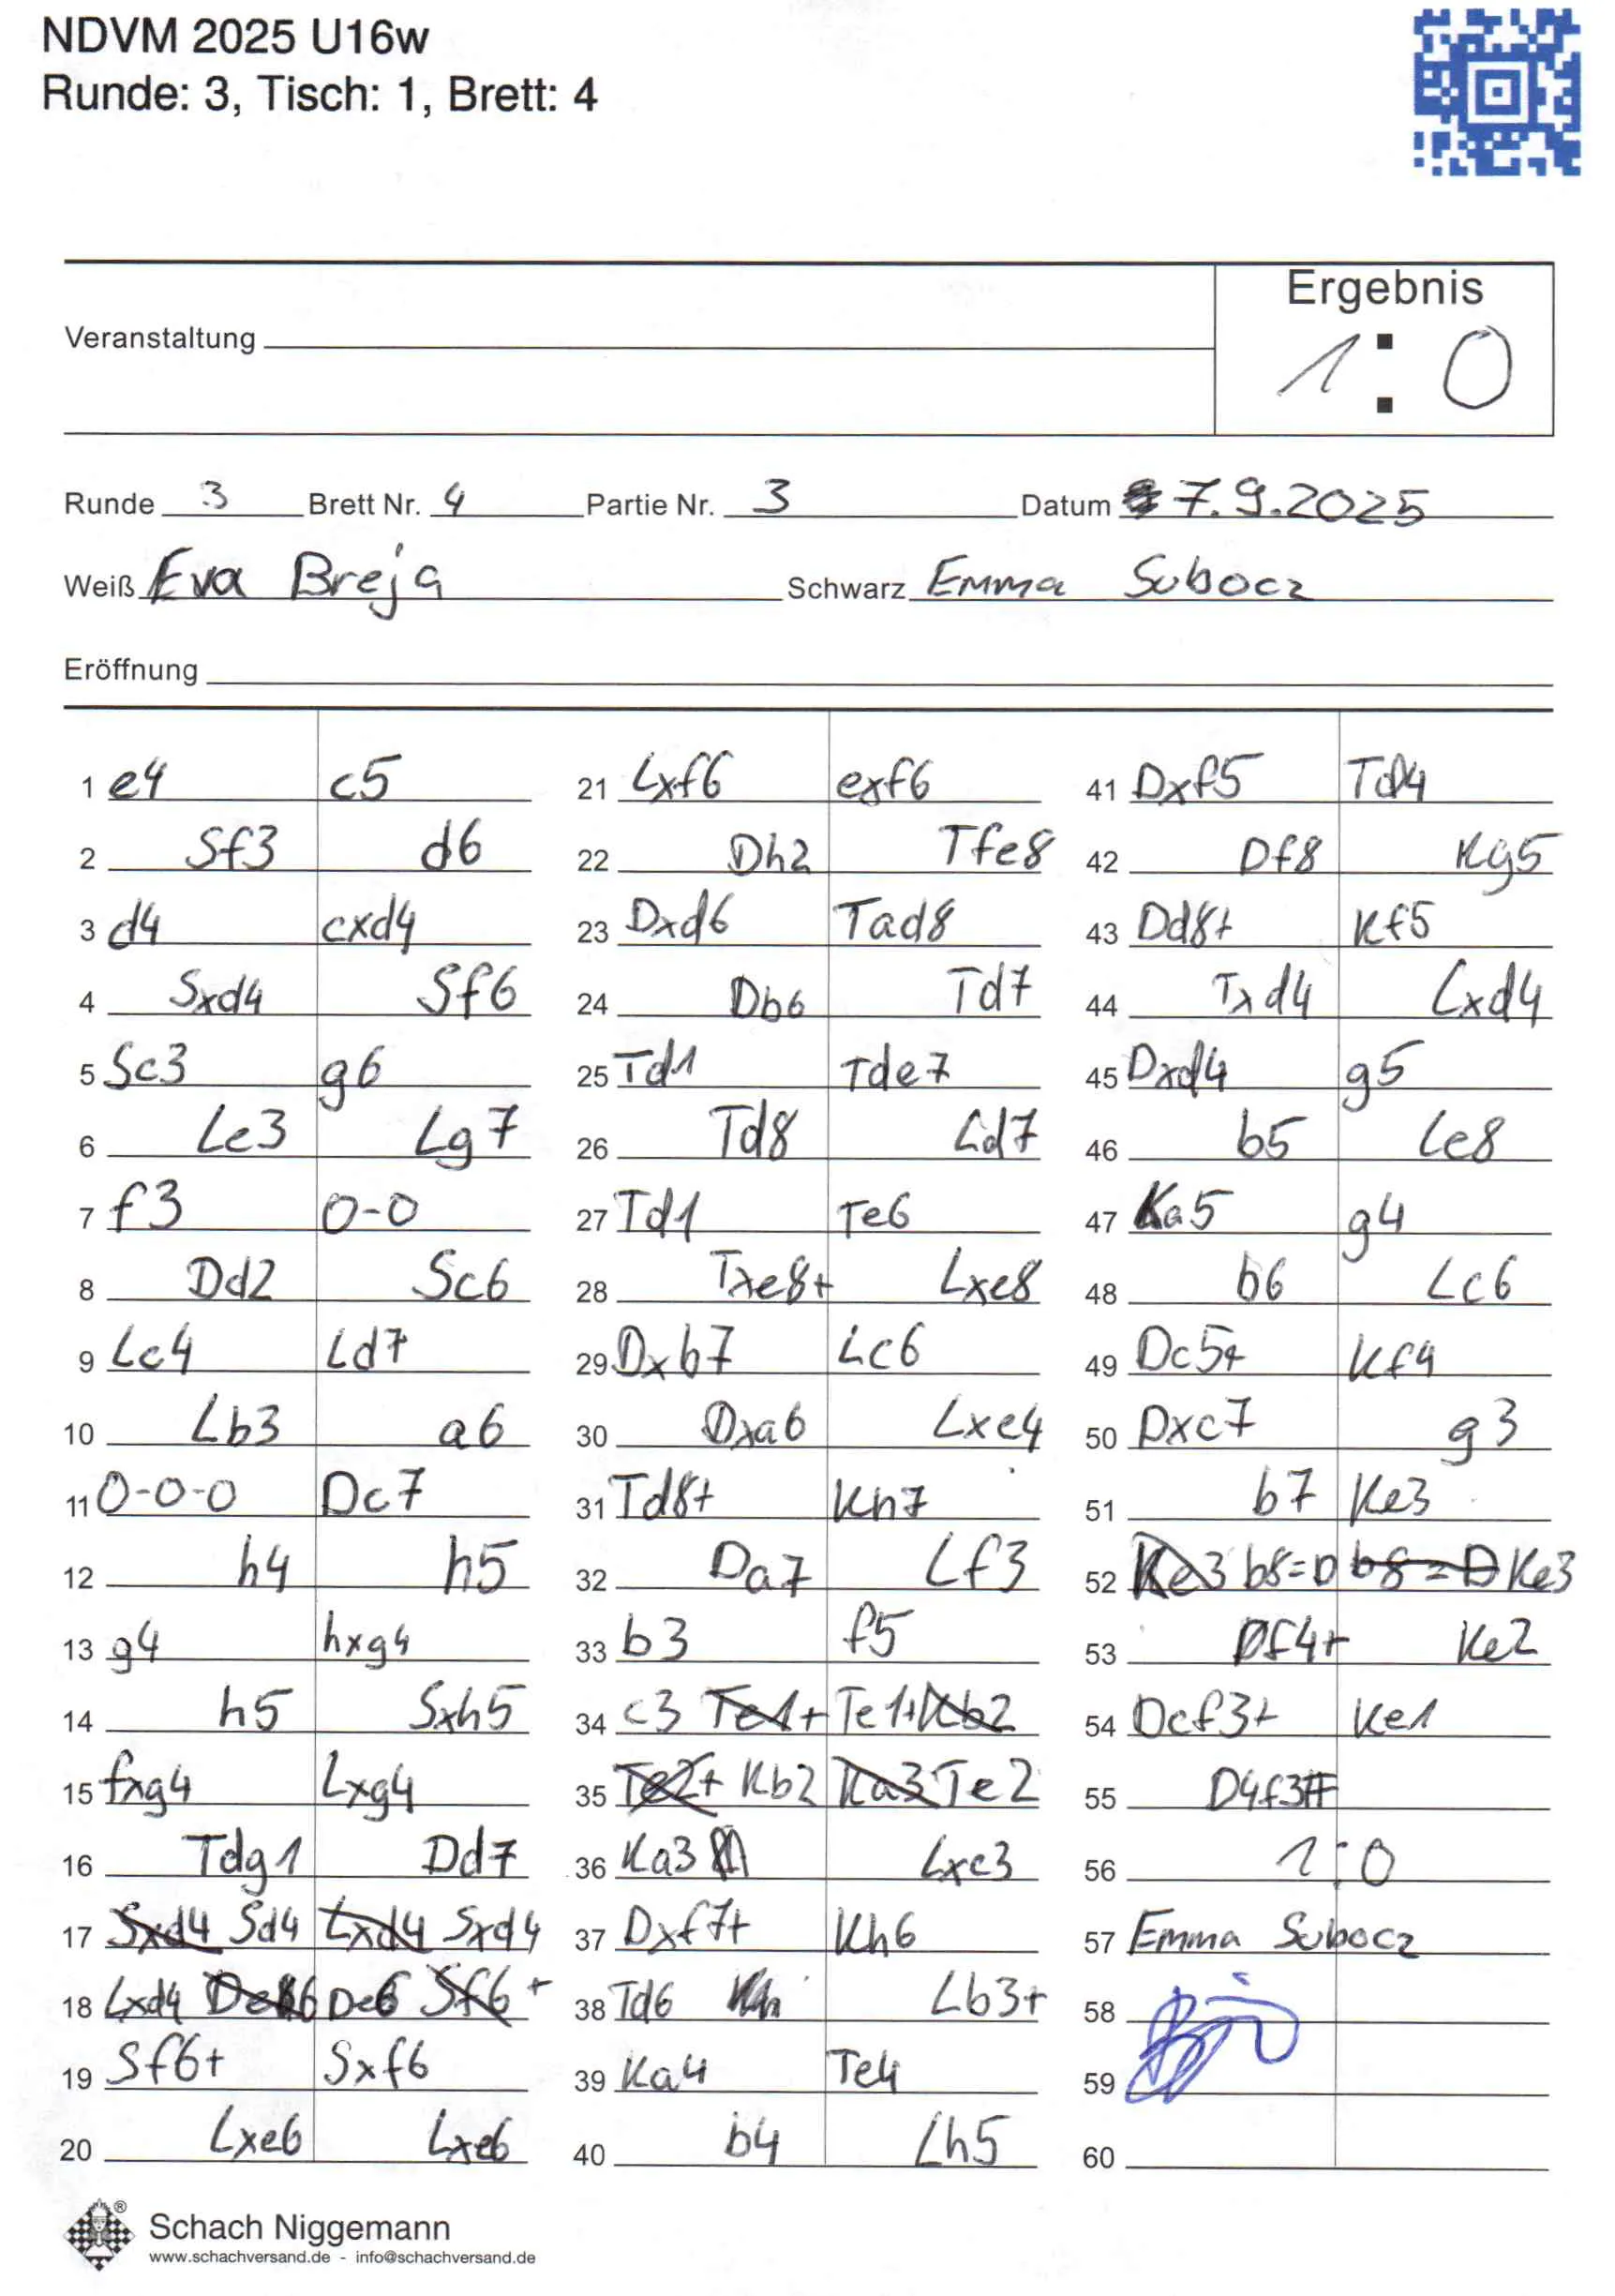 NDVM 2025 U16w
Runde: 3, Tisch: 1, Brett: 4
Ergebnis
1 : 0
Veranstaltung
Runde 3 Brett Nr. 4 Partie Nr. 3 Datum 7.9.2025
Weiß Eva Breja Schwarz Emma Subocz
Eröffnung
1 e4 c5
2 Sf3 d6
3 d4 cxd4
4 Sxd4 Sf6
5 Sc3 g6
6 Le3 Lg7
7 f3 0-0
8 Dd2 Sc6
9 Lc4 Ld7
10 Lb3 a6
11 0-0-0 Dc7
12 h4 h5
13 g4 hxg4
14 h5 Sxh5
15 fxg4 Lxg4
16 Tdg1 Dd7
17 Sxd4 Sd4 Lxd4 Sxd4
18 Lxd4 De6 Sf6+
19 Sf6+ Sxf6
20 Lxe6 Lxe6
21 Lxf6 exf6
22 Dh2 Tfe8
23 Dxd6 Tad8
24 Db6 Td7
25 Td1 Tde7
26 Td8 Ld7
27 Td1 Te6
28 Txe8+ Lxe8
29 Dxb7 Lc6
30 Dxa6 Lxe4
31 Td8+ Kh7
32 Da7 Lf3
33 b3 f5
34 c3 Te1+ Te1+ Kb2
35 Te2+ Kb2 Ka3 Te2
36 Ka3 Lxc3
37 Dxf7+ Kh6
38 Td6 Lb3+
39 Ka4 Te4
40 b4 Lh5
41 Dxf5 Td4
42 Df8 Kg5
43 Dd8+ Kf5
44 Txd4 Lxd4
45 Dxd4 g5
46 b5 Le8
47 Ka5 g4
48 b6 Lc6
49 Dc5+ Kf4
50 Dxc7 g3
51 b7 Ke3
52 Ke3 b8=D b8=D Ke3
53 Df4+ Ke2
54 Dcf3+ Ke1
55 D4f3#
56 1:0
57 Emma Subocz
58
59
60
Schach Niggemann
®
www.schachversand.de - info@schachversand.de